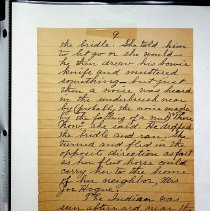 9
the bridle. She told him
to let go or she would —
he then drew his bowie
knife and muttered
something — but just
then a noise was heard
in the underbrush near
by (probably the noise made
by the falling of a nut) "There
now" she said. He dropped
the bridle and ran. She
turned and fled in the
opposite direction as fast
as her fleet horse could
carry her to the home
of her neighbor Mrs.
Joe Hogue.
The Indian was
seen afterward near the